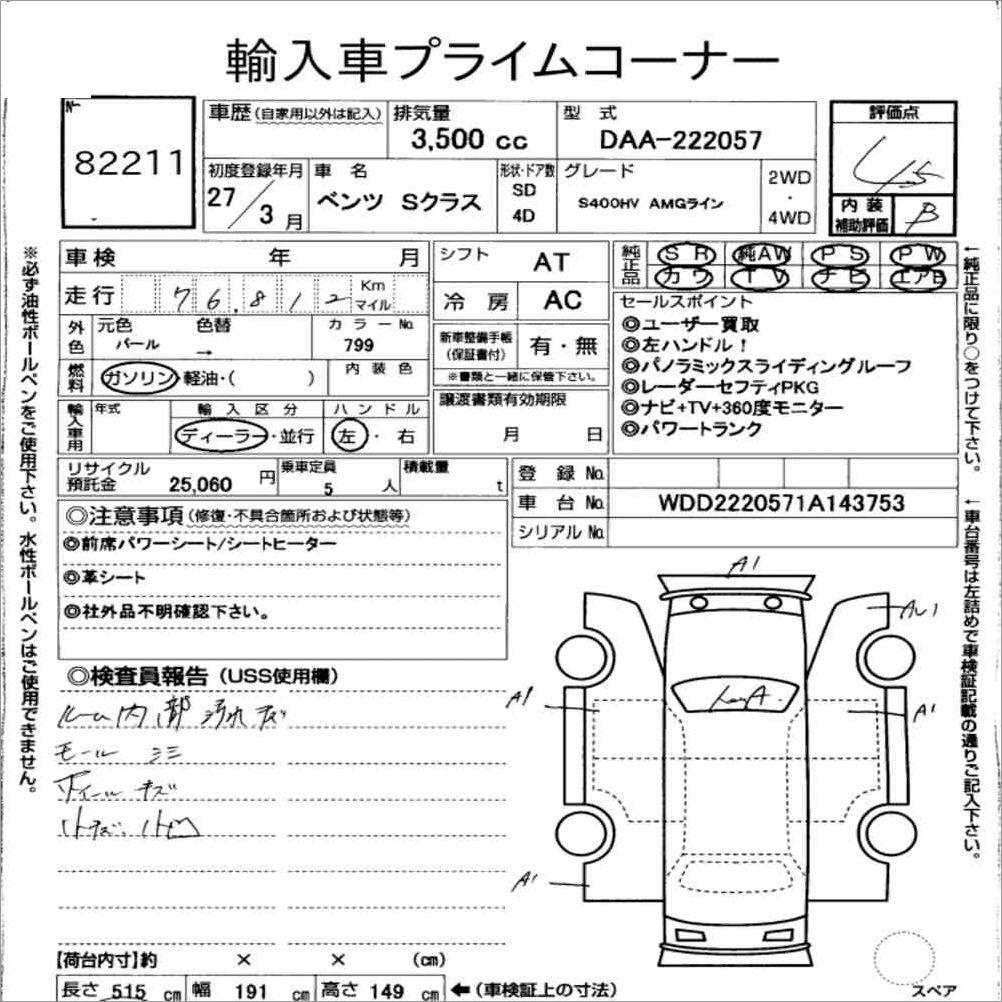 輸入車プライムコーナー
No.
82211
車歴(自家用以外は記入)
排気量
3,500 cc
型 式
DAA-222057
評価点
4.5
初度登録年月
27/3月
車 名
ベンツ Sクラス
形状・ドア数
SD
4D
グレード
S400HV AMGライン
2WD
・
4WD
内装
補助評価
B
車検 年 月
シフト
AT
純正品
SR 純AW PS PW
カワ TV ナビ エアB
走行 76,812 Km マイル
冷房
AC
セールスポイント
◎ユーザー買取
◎左ハンドル!
◎パノラミックスライディングルーフ
◎レーダーセフティPKG
◎ナビ+TV+360度モニター
◎パワートランク
外色
元色
パール
色替
→
カラーNo.
799
新車整備手帳
(保証書付)
有・無
※書類と一緒に保管下さい。
燃料
ガソリン・軽油・( )
内装色
譲渡書類有効期限
月 日
輸入車用
年式
輸入区分
ディーラー・並行
ハンドル
左・右
リサイクル
預託金
25,060 円
乗車定員
5 人
積載量
t
登録No.
車台No.
WDD2220571A143753
シリアルNo.
◎注意事項(修復・不具合箇所および状態等)
◎前席パワーシート/シートヒーター
◎革シート
◎社外品不明確認下さい。
◎検査員報告(USS使用欄)
ルーム内部汚れキズ
モール シミ
ホイールキズ
小キズ、小凹
A1
AU1
A1
A1
A1
※必ず油性ボールペンをご使用下さい。水性ボールペンはご使用できません。
←純正品に限り○をつけて下さい。
←車台番号は左詰めで車検証記載の通りご記入下さい。
【荷台内寸】約 × × (cm)
長さ 515 cm 幅 191 cm 高さ 149 cm ←(車検証上の寸法)
スペア